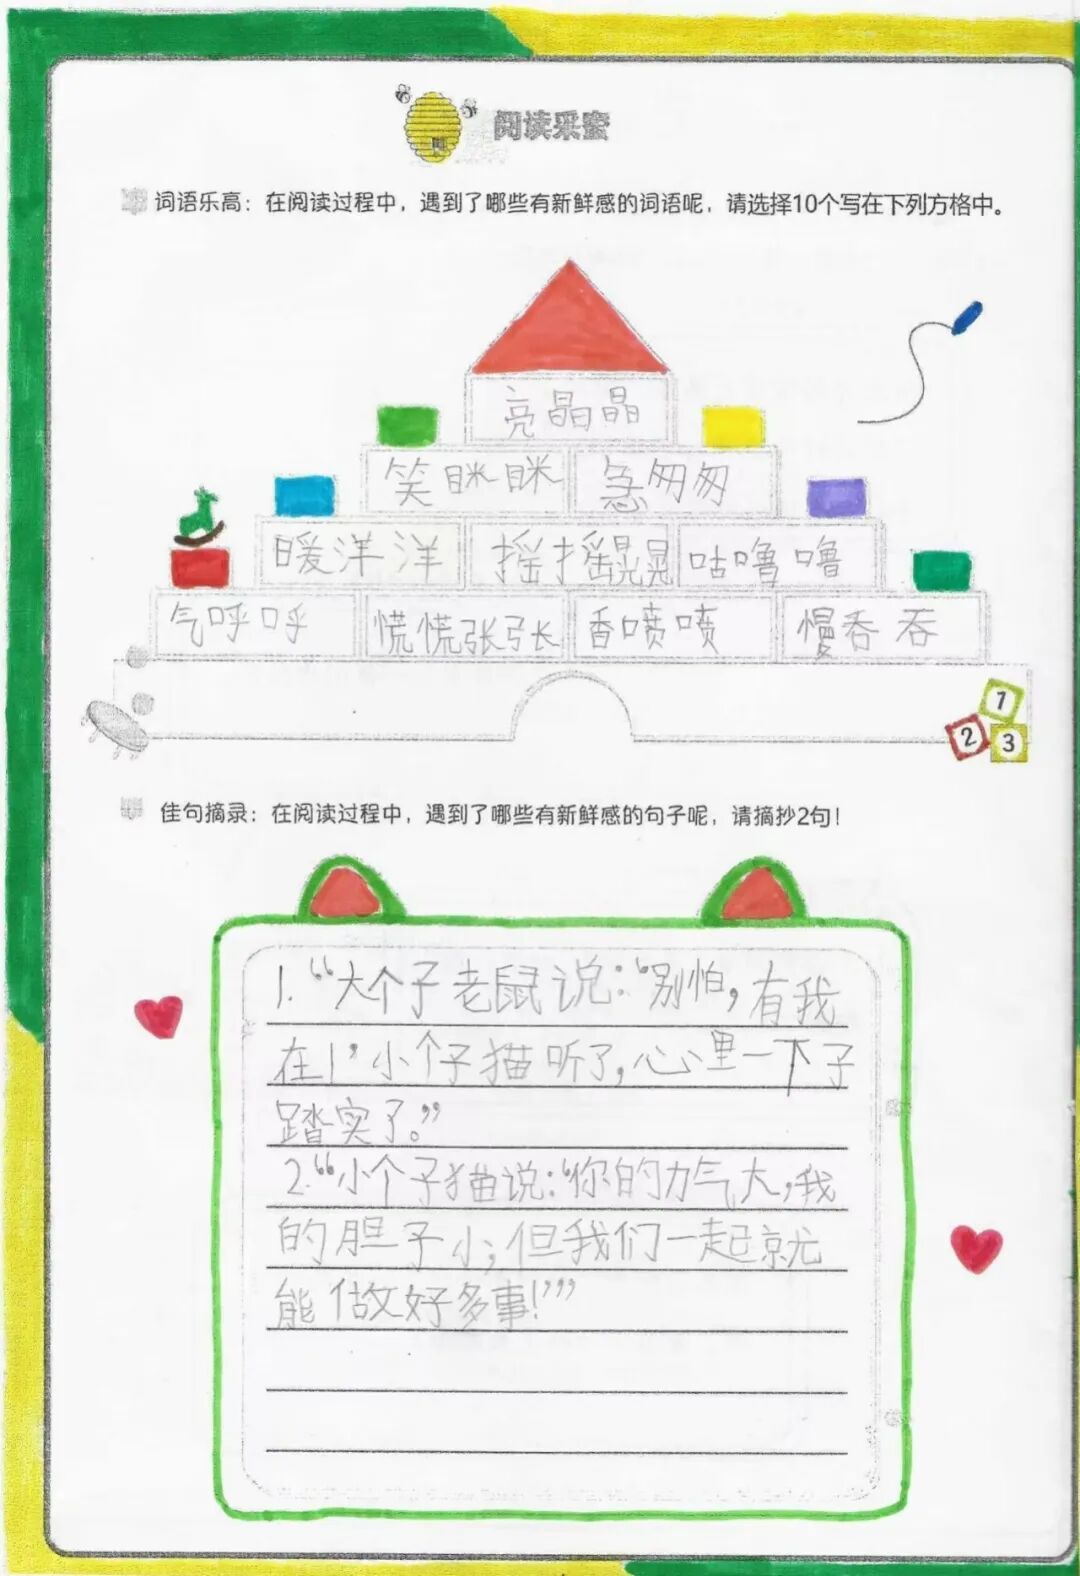 阅读采蜜
词语乐高：在阅读过程中，遇到了哪些有新鲜感的词语呢，请选择10个写在下列方格中。
亮晶晶
笑眯眯 急匆匆
暖洋洋 摇摇晃晃 咕噜噜
气呼呼 慌慌张张 香喷喷 慢吞吞
1
2 3
佳句摘录：在阅读过程中，遇到了哪些有新鲜感的句子呢，请摘抄2句！
1.“大个子老鼠说：“别怕，有我
在！’小个子猫听了，心里一下子
踏实了。”
2.“小个子猫说：‘你的力气大，我
的胆子小，但我们一起就
能做好多事！’””